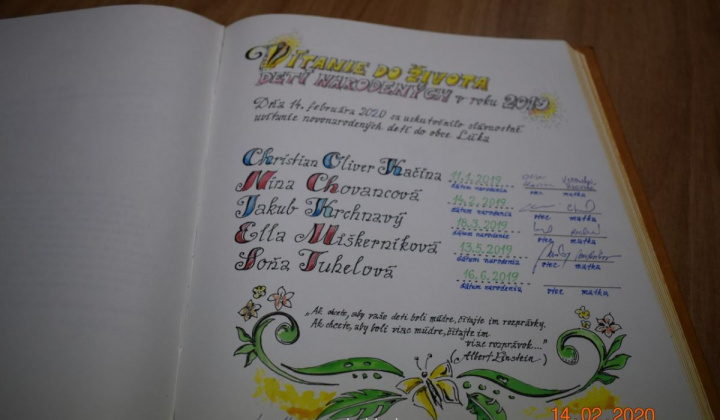 Vítanie do života
detí narodených v roku 2019
Dňa 14. februára 2020 sa uskutočnilo slávnostné
uvítanie novonarodených detí do obce Lúka
Christian Oliver Kačina 11.1.2019
dátum narodenia otec matka
Nina Chovancová 14.2.2019
dátum narodenia otec matka
Jakub Krchnavý 18.3.2019
dátum narodenia otec matka
Ella Miškerníková 13.5.2019
dátum narodenia otec matka
Soňa Tuhelová 16.6.2019
dátum narodenia otec matka
„Ak chcete, aby vaše deti boli múdre, čítajte im rozprávky.
Ak chcete, aby boli viac múdre, čítajte im
viac rozprávok..."
(Albert Einstein)
14 02 2020